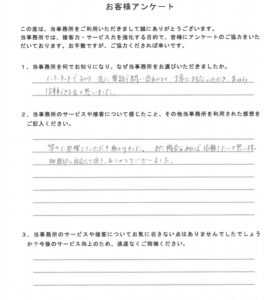 お客様アンケート
この度は、当事務所をご利用いただきまして誠にありがとうございます。
当事務所では、接客力・サービス力を強化する目的で、皆様にアンケートのご協力をいた
だいております。お手数ですが、ご協力くだされば幸いです。
１．当事務所を何でお知りになり、なぜ当事務所をお選びいただきましたか。
インターネットで知り
信頼できると思いました。
２．当事務所のサービスや接客について感じたこと、その他当事務所を利用された感想を
ご記入ください。
助かりました。また機会があれば
ありがとうございました。
３．当事務所のサービスや接客についてお気に召さない点はありませんでしたでしょう
か？今後のサービス向上のため、遠慮なくご指摘ください。